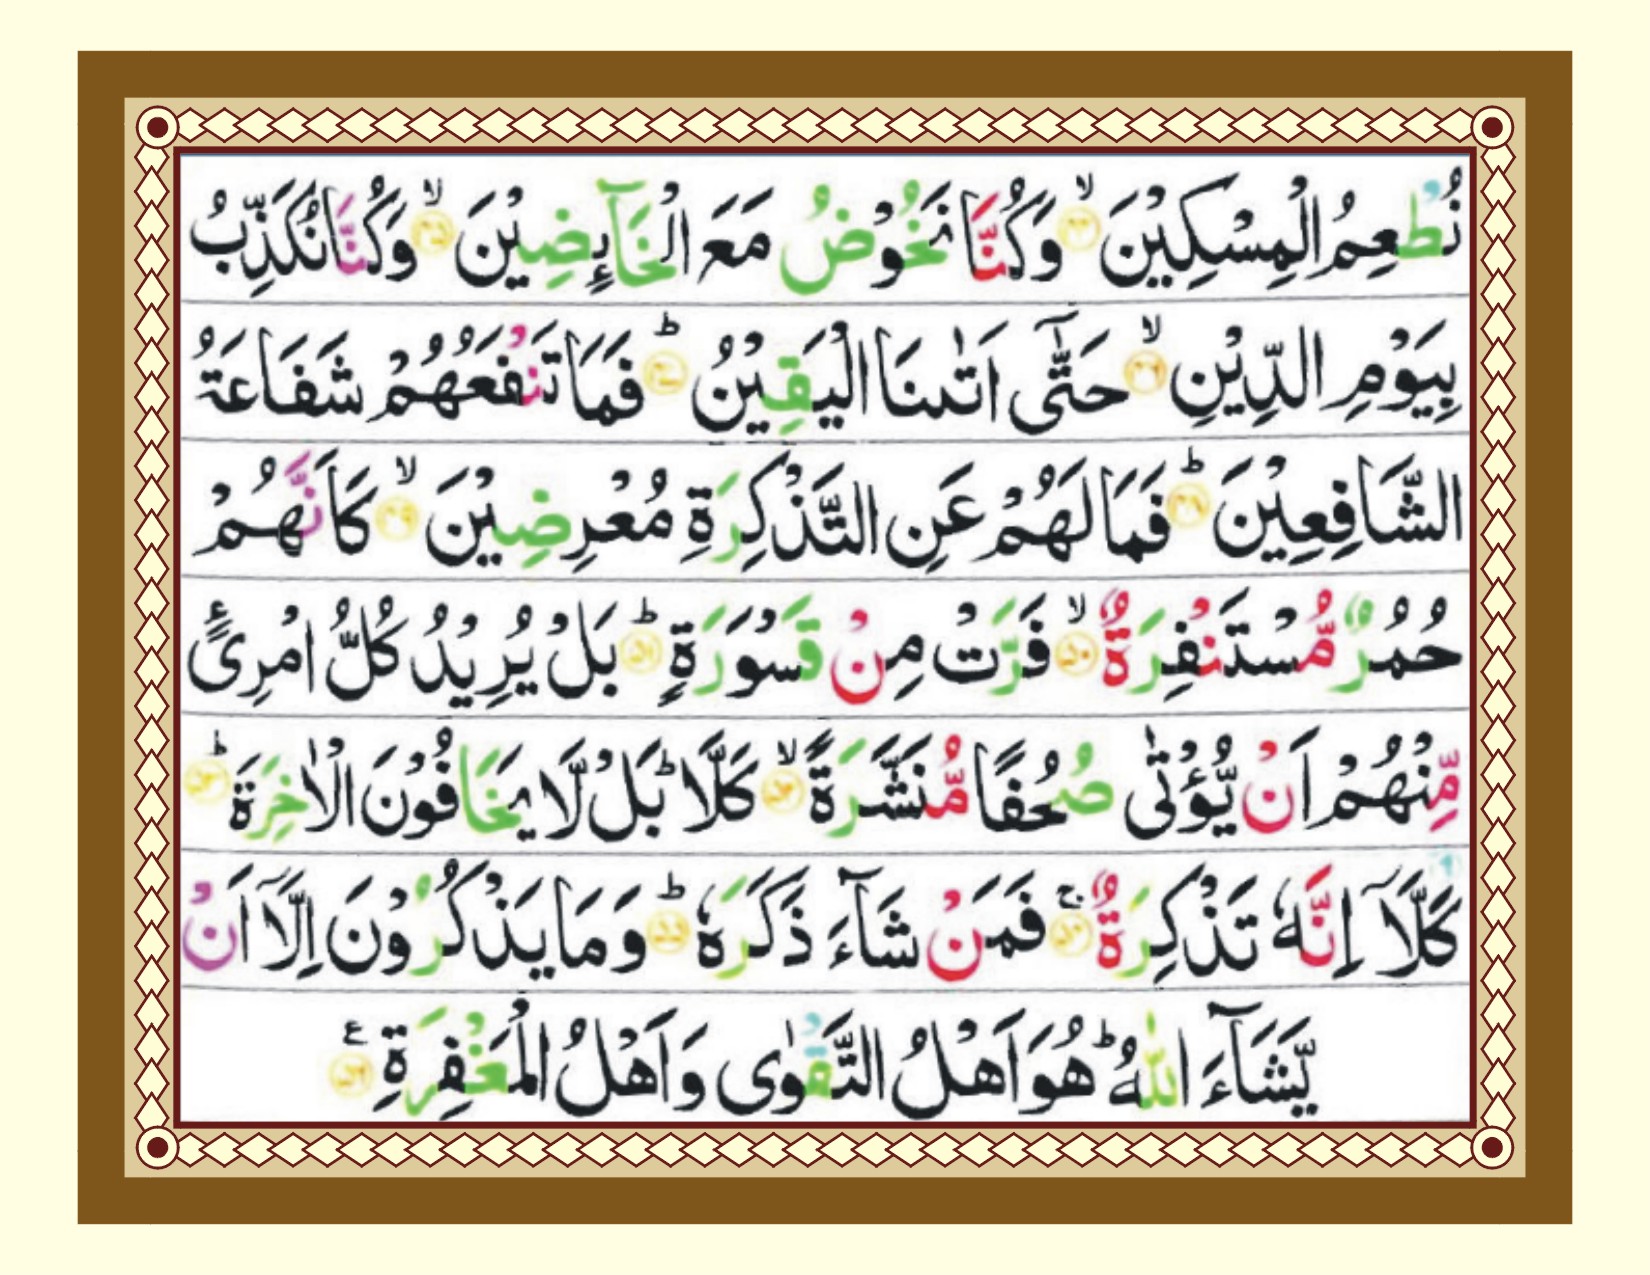 نُطْعِمُ الْمِسْكِيْنَ ۙ﴿۴۴﴾ وَكُنَّا نَخُوْضُ مَعَ الْخَآئِضِيْنَ ۙ﴿۴۵﴾ وَكُنَّا نُكَذِّبُ
بِيَوْمِ الدِّيْنِ ۙ﴿۴۶﴾ حَتّٰۤى اَتٰىنَا الْيَقِيْنُ ؕ﴿۴۷﴾ فَمَا تَنْفَعُهُمْ شَفَاعَةُ
الشَّافِعِيْنَ ؕ﴿۴۸﴾ فَمَا لَهُمْ عَنِ التَّذْكِرَةِ مُعْرِضِيْنَ ۙ﴿۴۹﴾ كَاَنَّهُمْ
حُمُرٌ مُّسْتَنْفِرَةٌ ۙ﴿۵۰﴾ فَرَّتْ مِنْ قَسْوَرَةٍ ؕ﴿۵۱﴾ بَلْ يُرِيْدُ كُلُّ امْرِئٍ
مِّنْهُمْ اَنْ يُّؤْتٰى صُحُفًا مُّنَشَّرَةً ۙ﴿۵۲﴾ كَلَّا ؕ بَلْ لَّا يَخَافُوْنَ الْاٰخِرَةَ ؕ﴿۵۳﴾
كَلَّاۤ اِنَّهٗ تَذْكِرَةٌ ۚ﴿۵۴﴾ فَمَنْ شَآءَ ذَكَرَهٗ ؕ﴿۵۵﴾ وَمَا يَذْكُرُوْنَ اِلَّاۤ اَنْ
يَّشَآءَ اللّٰهُ ؕ هُوَ اَهْلُ التَّقْوٰى وَاَهْلُ الْمَغْفِرَةِ ﴿۵۶﴾ ع